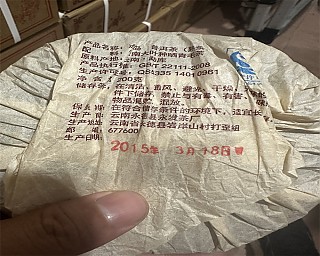 产品名称: 普洱茶
配 料: 南大叶种晒青
原料产地: 勐库
产品执行标 GB/T 22111-2008
生产许可号: QS5335 1401 0961
净含 200克
储存条: 在清洁, 通风、避光、干燥、
件下储存, 禁止与有毒、有害、
物品混贮、混放。
保 期: 在符合储存条件的环境下, 适宜长
生产 云南永德县永发茶厂
生产地址: 云南省永德县岩岸山村打歪组
邮 677600
生产日
2015年 3月18日